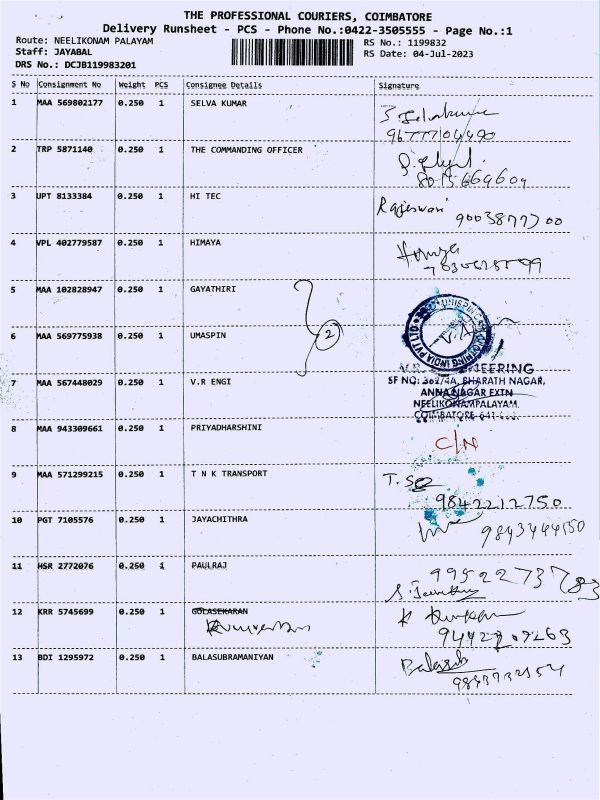 THE PROFESSIONAL COURIERS, COIMBATORE
Delivery Runsheet - PCS - Phone No.:0422-3505555 - Page No.:1
Route: NEELIKONAM PALAYAM RS No.: 1199832
Staff: JAYABAL RS Date: 04-Jul-2023
DRS No.: DCJB119983201
S No Consignment No Weight PCS Consignee Details Signature
1 MAA 569802177 0.250 1 SELVA KUMAR
9677704490
2 TRP 5871140 0.250 1 THE COMMANDING OFFICER
8015669604
3 UPT 8133384 0.250 1 HI TEC Rajeswari 9003877700
4 VPL 402779587 0.250 1 HIMAYA
5 MAA 102828947 0.250 1 GAYATHIRI
6 MAA 569775938 0.250 1 UMASPIN 2
7 MAA 567448029 0.250 1 V.R ENGI
SF NO: 302/4A, BHARATH NAGAR,
ANNA NAGAR EXTN
NEELIKONAMPALAYAM
COIMBATORE
8 MAA 943309661 0.250 1 PRIYADHARSHINI C/N
9 MAA 571299215 0.250 1 T N K TRANSPORT
9842212750
10 PGT 7105576 0.250 1 JAYACHITHRA 9843444150
11 HSR 2772076 0.250 1 PAULRAJ 9952273783
12 KRR 5745699 0.250 1 GOLASEKARAN
13 BDI 1295972 0.250 1 BALASUBRAMANIYAN